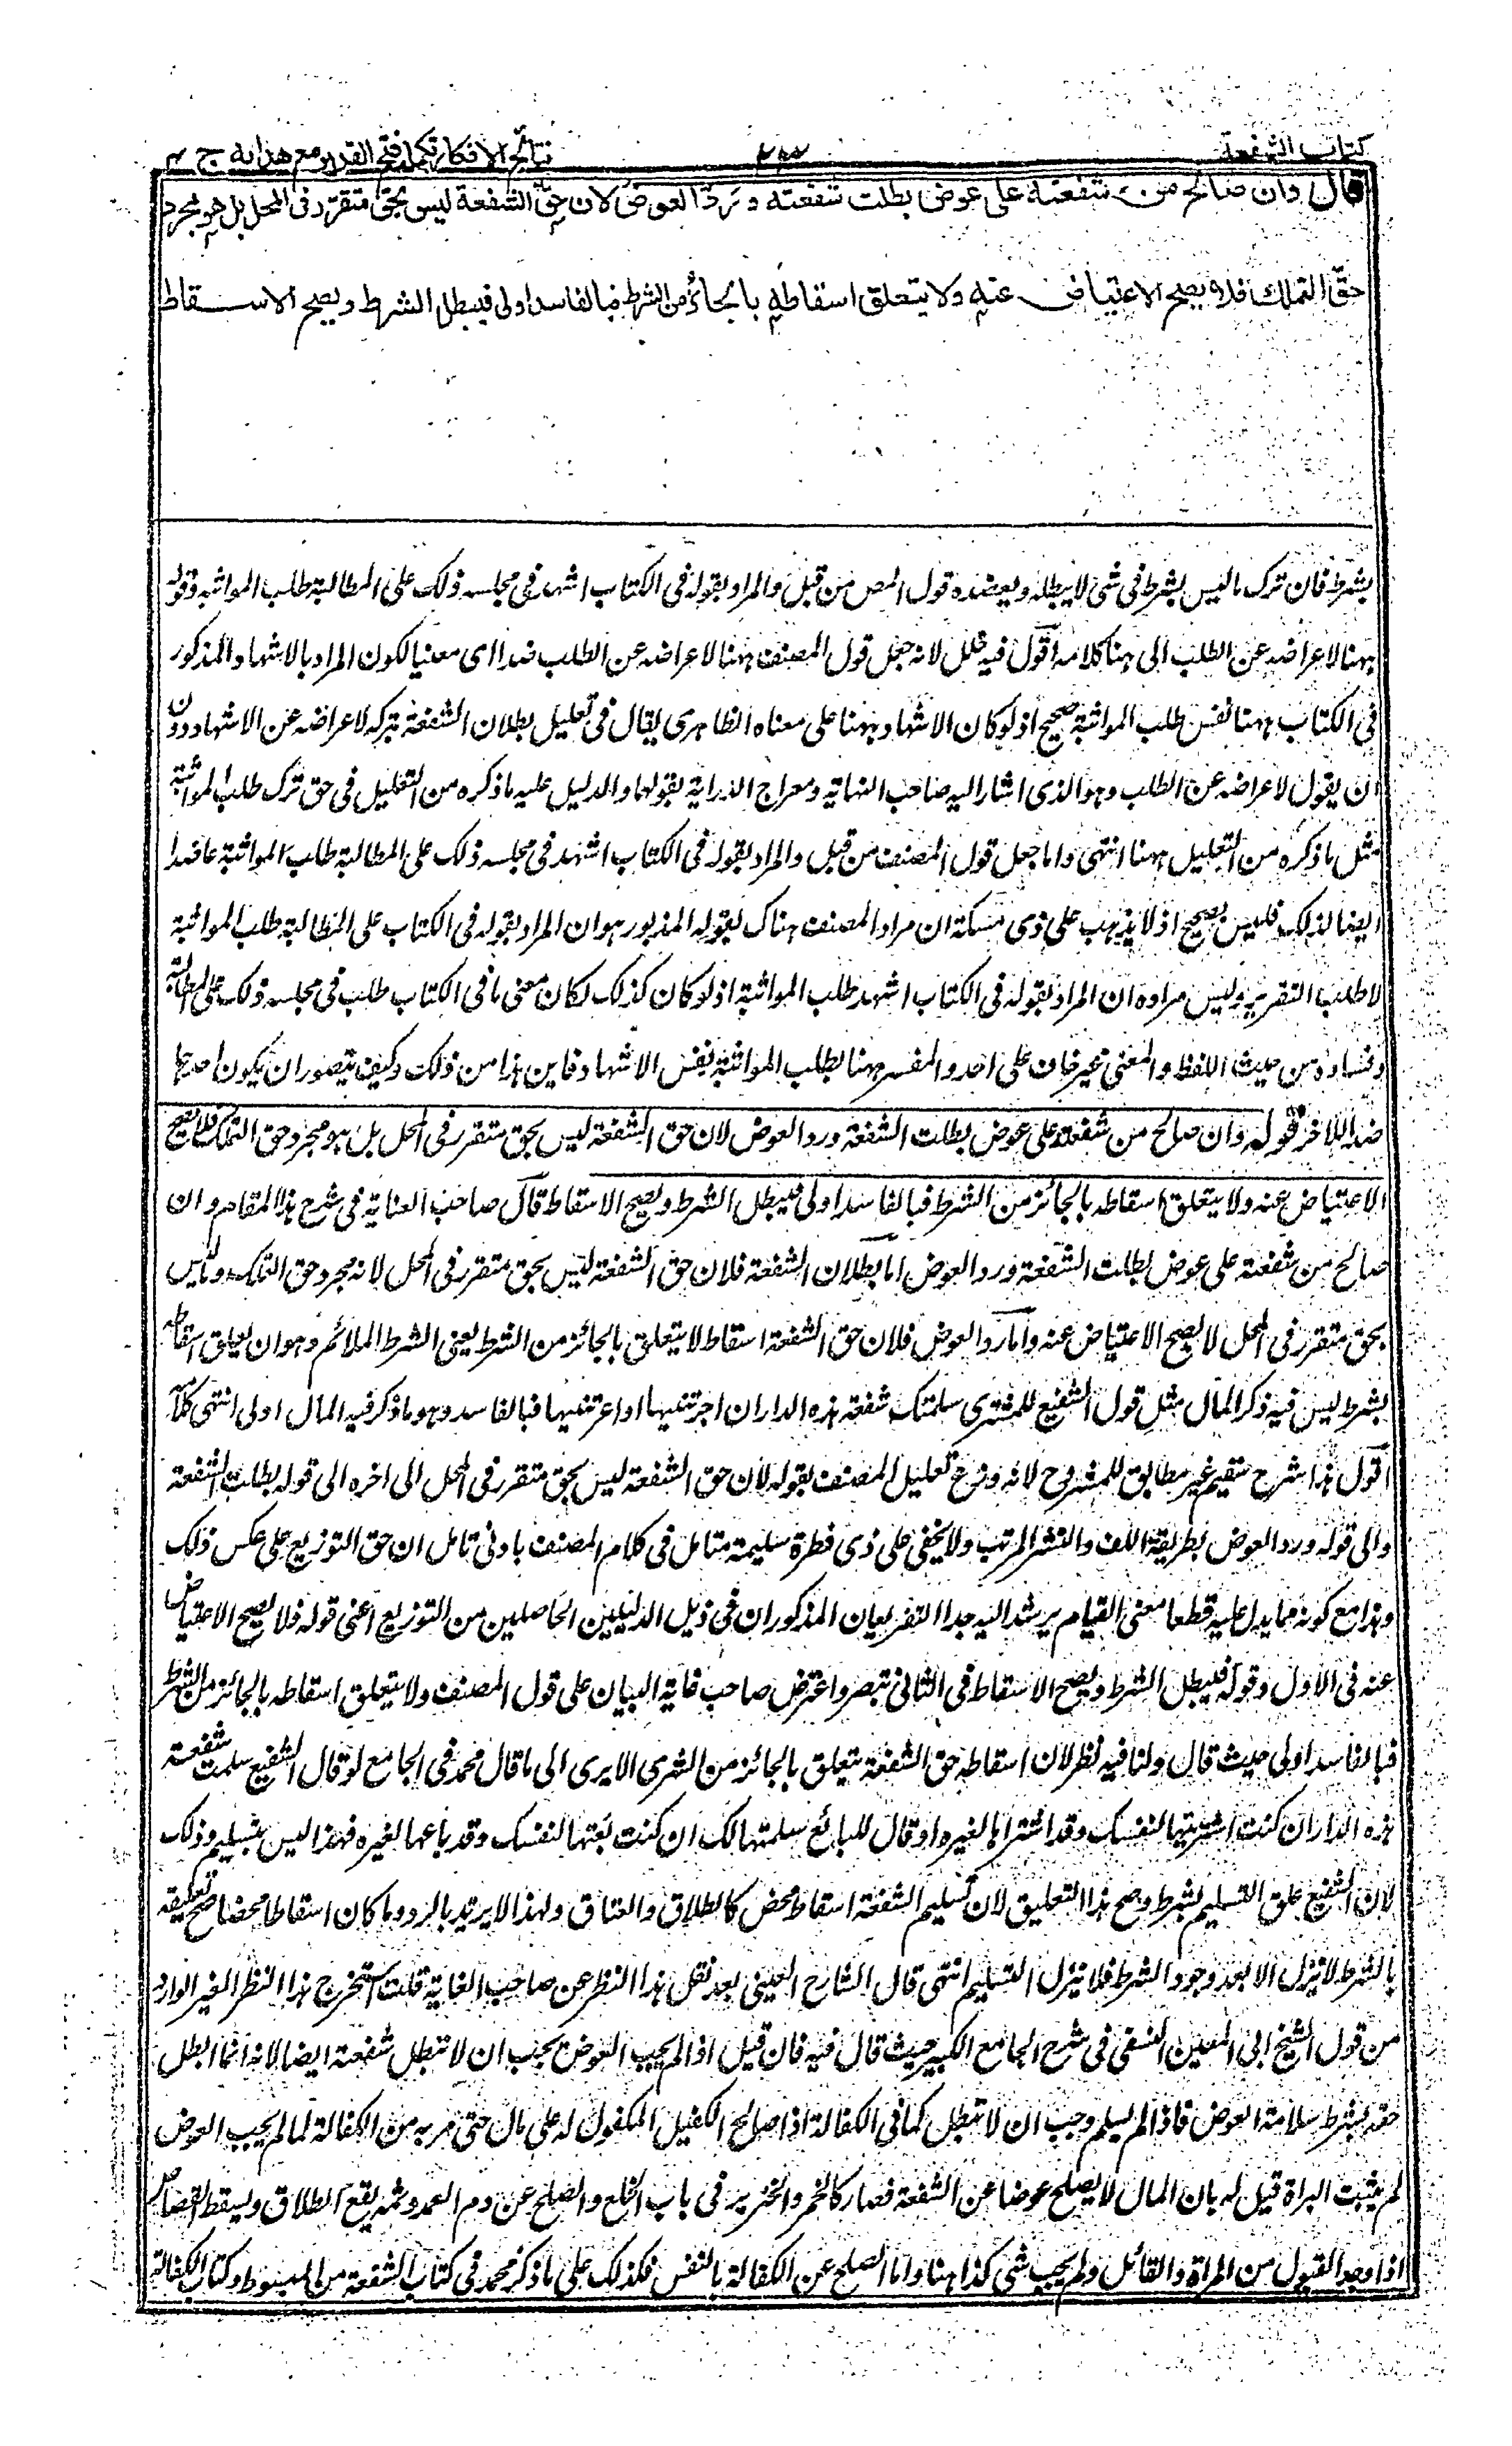 كتاب الشفعة
نتائج الافكار تكملة فتح القدير مع هداية ج ٤
قال وان صالح من شفعته على عوض بطلت شفعته ورد العوض لان حق الشفعة ليس بحق متقرر فى المحل بل هو مجرد
حق التملك فلا يصح الاعتياض عنه ولا يتعلق اسقاطه بالجائز من الشرط فبالفاسد اولى فيبطل الشرط ويصح الاسقاط
بشرط فان ترك ما ليس بشرط فى شئ لا يبطله ويعضده قول المص من قبل والمراد بقوله فى الكتاب اشهد فى مجلسه ذلك على المطالبة طلب المواثبة وقوله
ههنا لاعراضه عن الطلب الى هنا كلامه اقول فيه خلل لانه جعل قول المصنف ههنا لاعراضه عن الطلب ضدا اى معنيا لكون المراد بالاشهاد المذكور
فى الكتاب ههنا نفس طلب المواثبة صحيح اذ لو كان الاشهاد ههنا على معناه الظاهرى يقال فى تعليل بطلان الشفعة بتركه لاعراضه عن الاشهاد دون
ان يقول لاعراضه عن الطلب وهو الذى اشار اليه صاحب النهاية ومعراج الدراية بقولهما والدليل عليه ما ذكره من التعليل فى حق ترك طلب المواثبة
مثل ما ذكره من التعليل ههنا انتهى واما جعل قول المصنف من قبل والمراد بقوله فى الكتاب اشهد فى مجلسه ذلك على المطالبة طلب المواثبة عاضدا
ايضا لذلك فليس بصحيح اذ لا يذهب على ذى مسكة ان مراد المصنف هناك بقوله المذبور هو ان المراد بقوله فى الكتاب على المطالبة طلب المواثبة
لا طلب التقرير وليس مراده ان المراد بقوله فى الكتاب اشهد طلب المواثبة اذ لو كان كذلك لكان معنى ما فى الكتاب طلب فى مجلسه ذلك على المطالبة
وفساده من حيث اللفظ والمعنى غير خاف على احد والمفسر ههنا بطلب المواثبة نفس الاشهاد فاين هذا من ذلك وكيف يتصور ان يكون احدهما
ضدا للاخر قوله وان صالح من شفعته على عوض بطلت الشفعة ورد العوض لان حق الشفعة ليس بحق متقرر فى المحل بل هو مجرد حق التملك فلا يصح
الاعتياض عنه ولا يتعلق اسقاطه بالجائز من الشرط فبالفاسد اولى فيبطل الشرط ويصح الاسقاط قال صاحب العناية فى شرح هذا المقام وان
صالح من شفعته على عوض بطلت الشفعة ورد العوض اما بطلان الشفعة فلان حق الشفعة ليس بحق متقرر فى المحل لانه مجرد حق التملك وما ليس
بحق متقرر فى المحل لا يصح الاعتياض عنه واما رد العوض فلان حق الشفعة اسقاط لا يتعلق بالجائز من الشرط يعنى الشرط الملائم وهو ان يعلق اسقاطه
بشرط ليس فيه ذكر المال مثل قول الشفيع للمشترى سلمتك شفعة هذه الدار ان اجرتنيها او اعرتنيها فبالفاسد وهو ما ذكر فيه المال اولى انتهى كلامه
اقول هذا شرح سقيم غير مطابق للمشروح لانه وزع تعليل المصنف بقوله لان حق الشفعة ليس بحق متقرر فى المحل الى اخره الى قوله بطلت الشفعة
والى قوله ورد العوض بطريقة اللف والنشر المرتب ولا يخفى على ذى فطرة سليمة متامل فى كلام المصنف بادنى تامل ان حق التوزيع على عكس ذلك
وهذا مع كونه مما يدل عليه قطعا معنى القيام يرشد اليه جدا التفريعان المذكوران فى ذيل الدليلين الحاصلين من التوزيع اعنى قوله فلا يصح الاعتياض
عنه فى الاول وقوله فيبطل الشرط ويصح الاسقاط فى الثانى تبصر واعترض صاحب غاية البيان على قول المصنف ولا يتعلق اسقاطه بالجائز من الشرط
فبالفاسد اولى حيث قال ولنا فيه نظر لان اسقاط حق الشفعة يتعلق بالجائز من الشرط الا يرى الى ما قال محمد فى الجامع لو قال الشفيع سلمت شفعة
هذه الدار ان كنت اشتريتها لنفسك وقد اشتراها لغيره او قال للبائع سلمتها لك ان كنت بعتها لنفسك وقد باعها لغيره فهذا ليس بتسليم وذلك
لان الشفيع علق التسليم بشرط وصح هذا التعليق لان تسليم الشفعة اسقاط محض كالطلاق والعتاق ولهذا لا يرتد بالرد وما كان اسقاطا محضا صح تعليقه
بالشرط لا ينزل الا بعد وجود الشرط فلا ينزل التسليم انتهى قال الشارح العينى بعد نقل هذا النظر عن صاحب الغاية قلت استخرج هذا النظر الغير الوارد
من قول الشيخ ابى المعين النسفى فى شرح الجامع الكبير حيث قال فيه فان قيل اذا لم يجب العوض يجب ان لا تبطل شفعته ايضا لانه انما ابطل
حقه بشرط سلامة العوض فاذا لم يسلم وجب ان لا تبطل كما فى الكفالة اذا صالح الكفيل المكفول له على مال حتى مر به من الكفالة لما لم يجب العوض
لم يثبت البراة قيل له بان المال لا يصلح عوضا عن الشفعة فصار كالخمر والخنزير فى باب الخلع والصلح عن دم العمد وثمه يقع الطلاق ويسقط القصاص
اذا وجد القبول من المراة والقائل ولم يجب شئ كذا ههنا واما الصلح عن الكفالة بالنفس فكذلك على ما ذكر محمد فى كتاب الشفعة من المبسوط وكتاب الكفالة